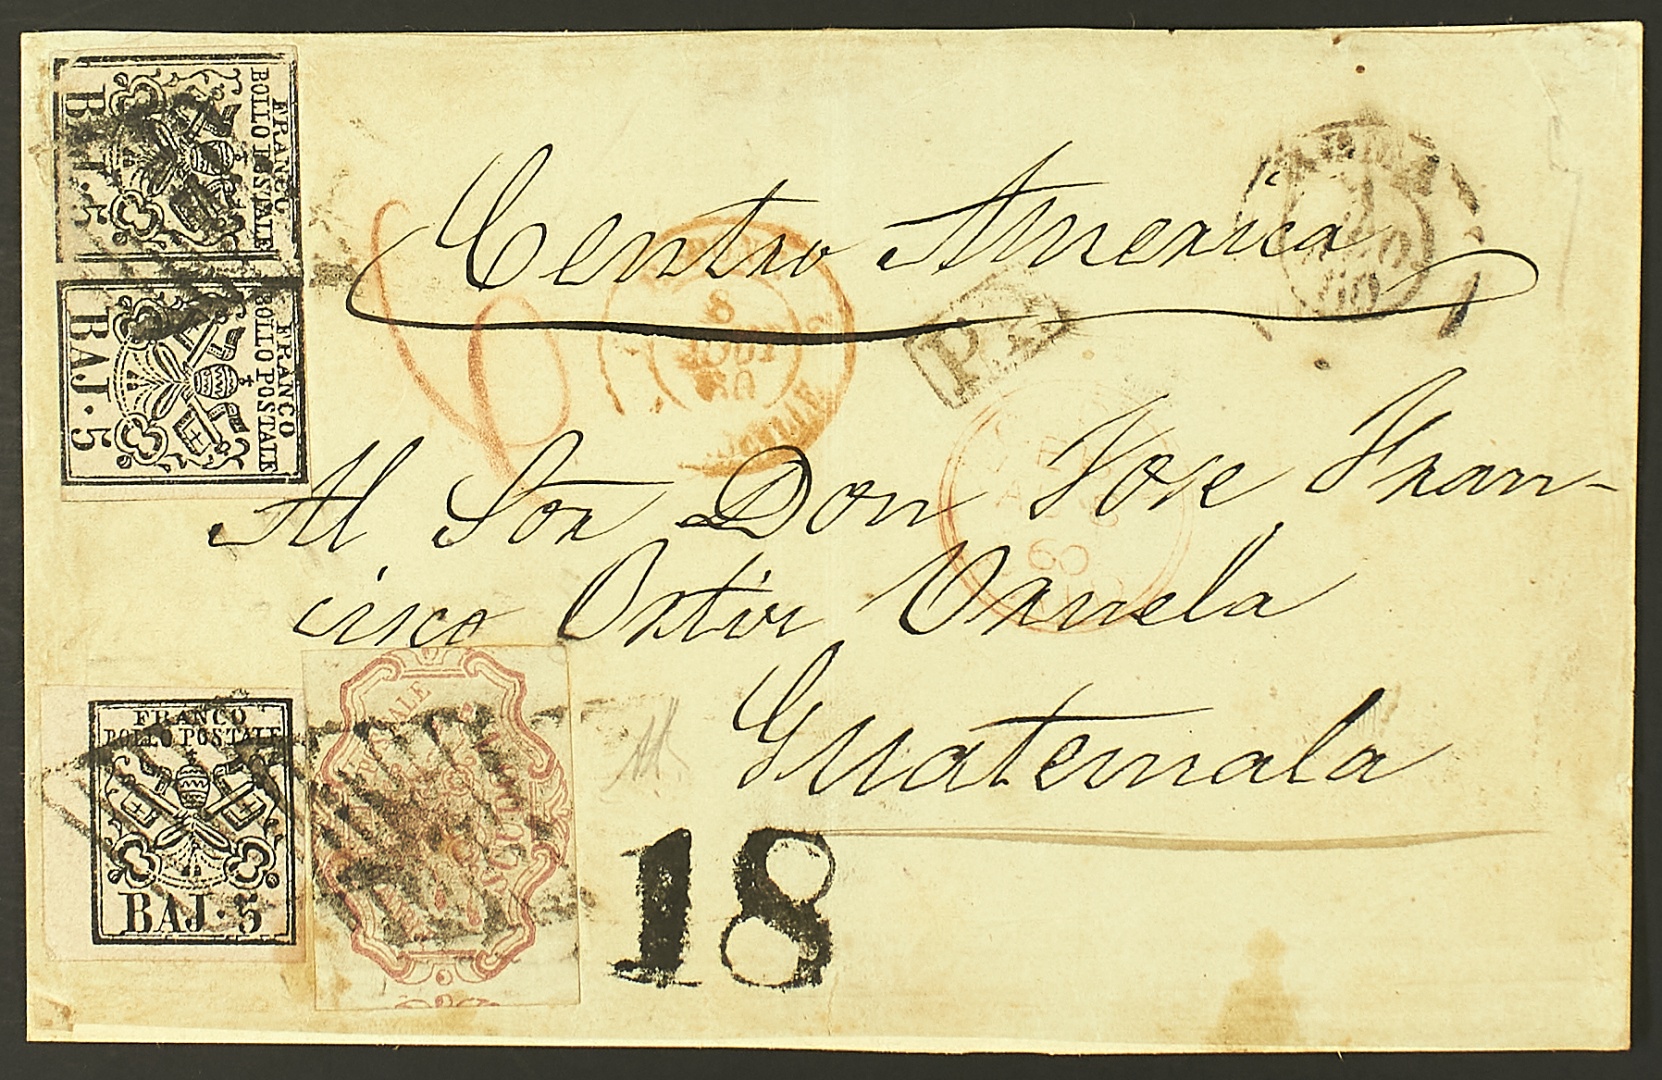 FRANCO
BOLLO POSTALE
BAJ·5
FRANCO
BOLLO POSTALE
BAJ·5
Centro America
8
AOUT
60
P.D.
60
Al Sor Don Jose Fran-
cisco Ortiz Urruela
Guatemala
FRANCO
BOLLO POSTALE
BAJ·5
SCUDO
18